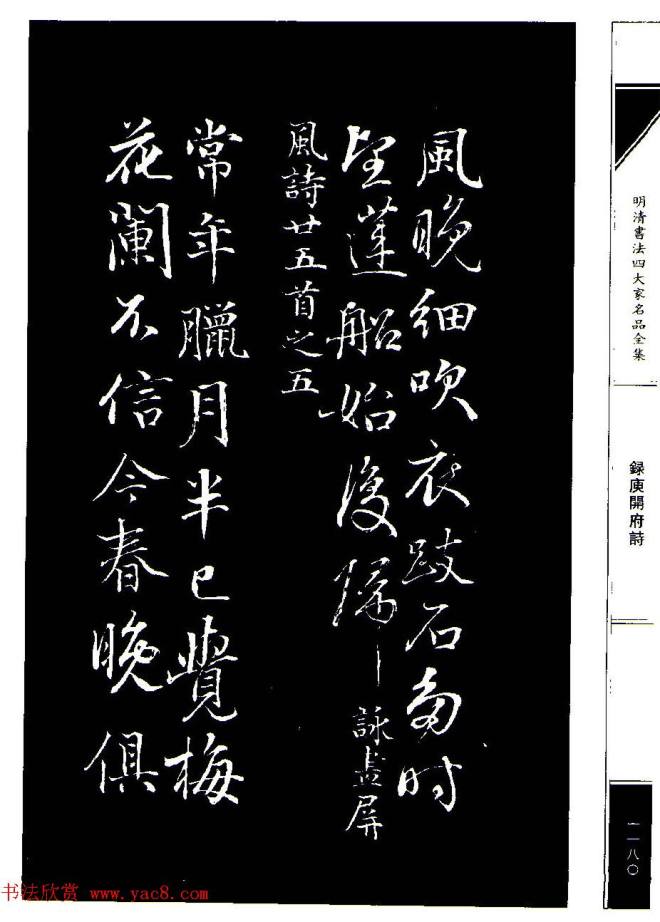 明清書法四大家名品全集
録庾開府詩
一一八〇
風晚細吹衣跂石多时
望蓮船始復歸 詠畫屏
風詩廿五首之五
常年臘月半已覺梅
花闌不信今春晚俱
书法欣赏 www.yac8.com